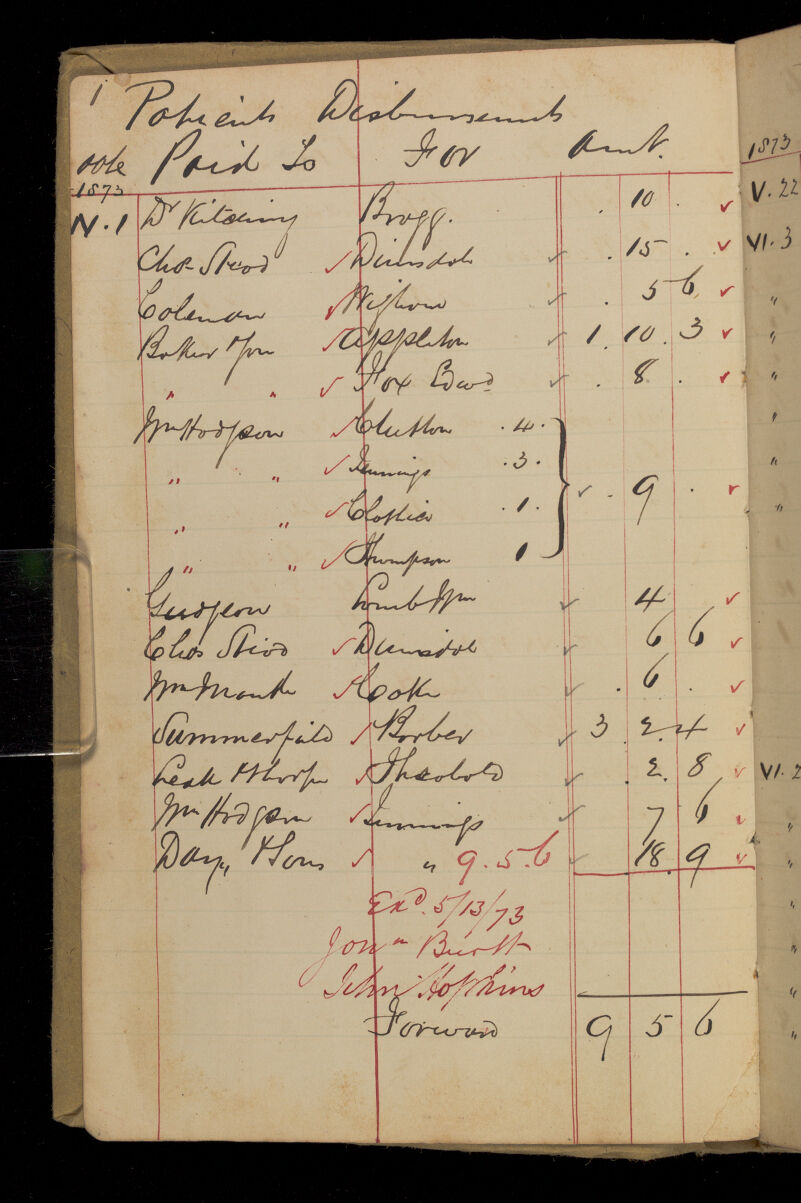 1
Patients Disbursements
Date Paid To For Amt.
1873
V. 1 Dr Kitching Bragg. . 10 . ✓
Chas Steod ✓ Dimsdale ✓ . 15 . ✓
Coleman ✓ Wigham ✓ . 5 6 ✓
Baker & Son ✓ Appleton ✓ 1 . 10 . 3 ✓
" " ✓ Fox Edwd ✓ . 8 . ✓
Wm Hodgson ✓ Clutton . 4 .
" " ✓ Jennings . 3 . ✓ . 9 . ✓
" " ✓ Clothier . 1 .
" " ✓ Thompson 1
Gudgeon Comb Wm ✓ 4 ✓
Chas Steod ✓ Dimsdale ✓ 6 6 ✓
Wm Mantle ✓ Cooke ✓ . 6 . ✓
Summerfield ✓ Barber ✓ 3 2 4 ✓
Leak & Thorpe ✓ Theobald ✓ . 2 . 8 ✓
Wm Hodgson ✓ Jennings ✓ 7 6 ✓
Day & Sons ✓ " 9 . 5 . 6 ✓ 18 . 9 ✓
Exd. 5/13/73
Jonn Burtt
John Hopkins
Forward 9 5 6
1873
V. 22
VI. 3
"
"
"
"
"
"
VI. 2
"
"
"
"
"